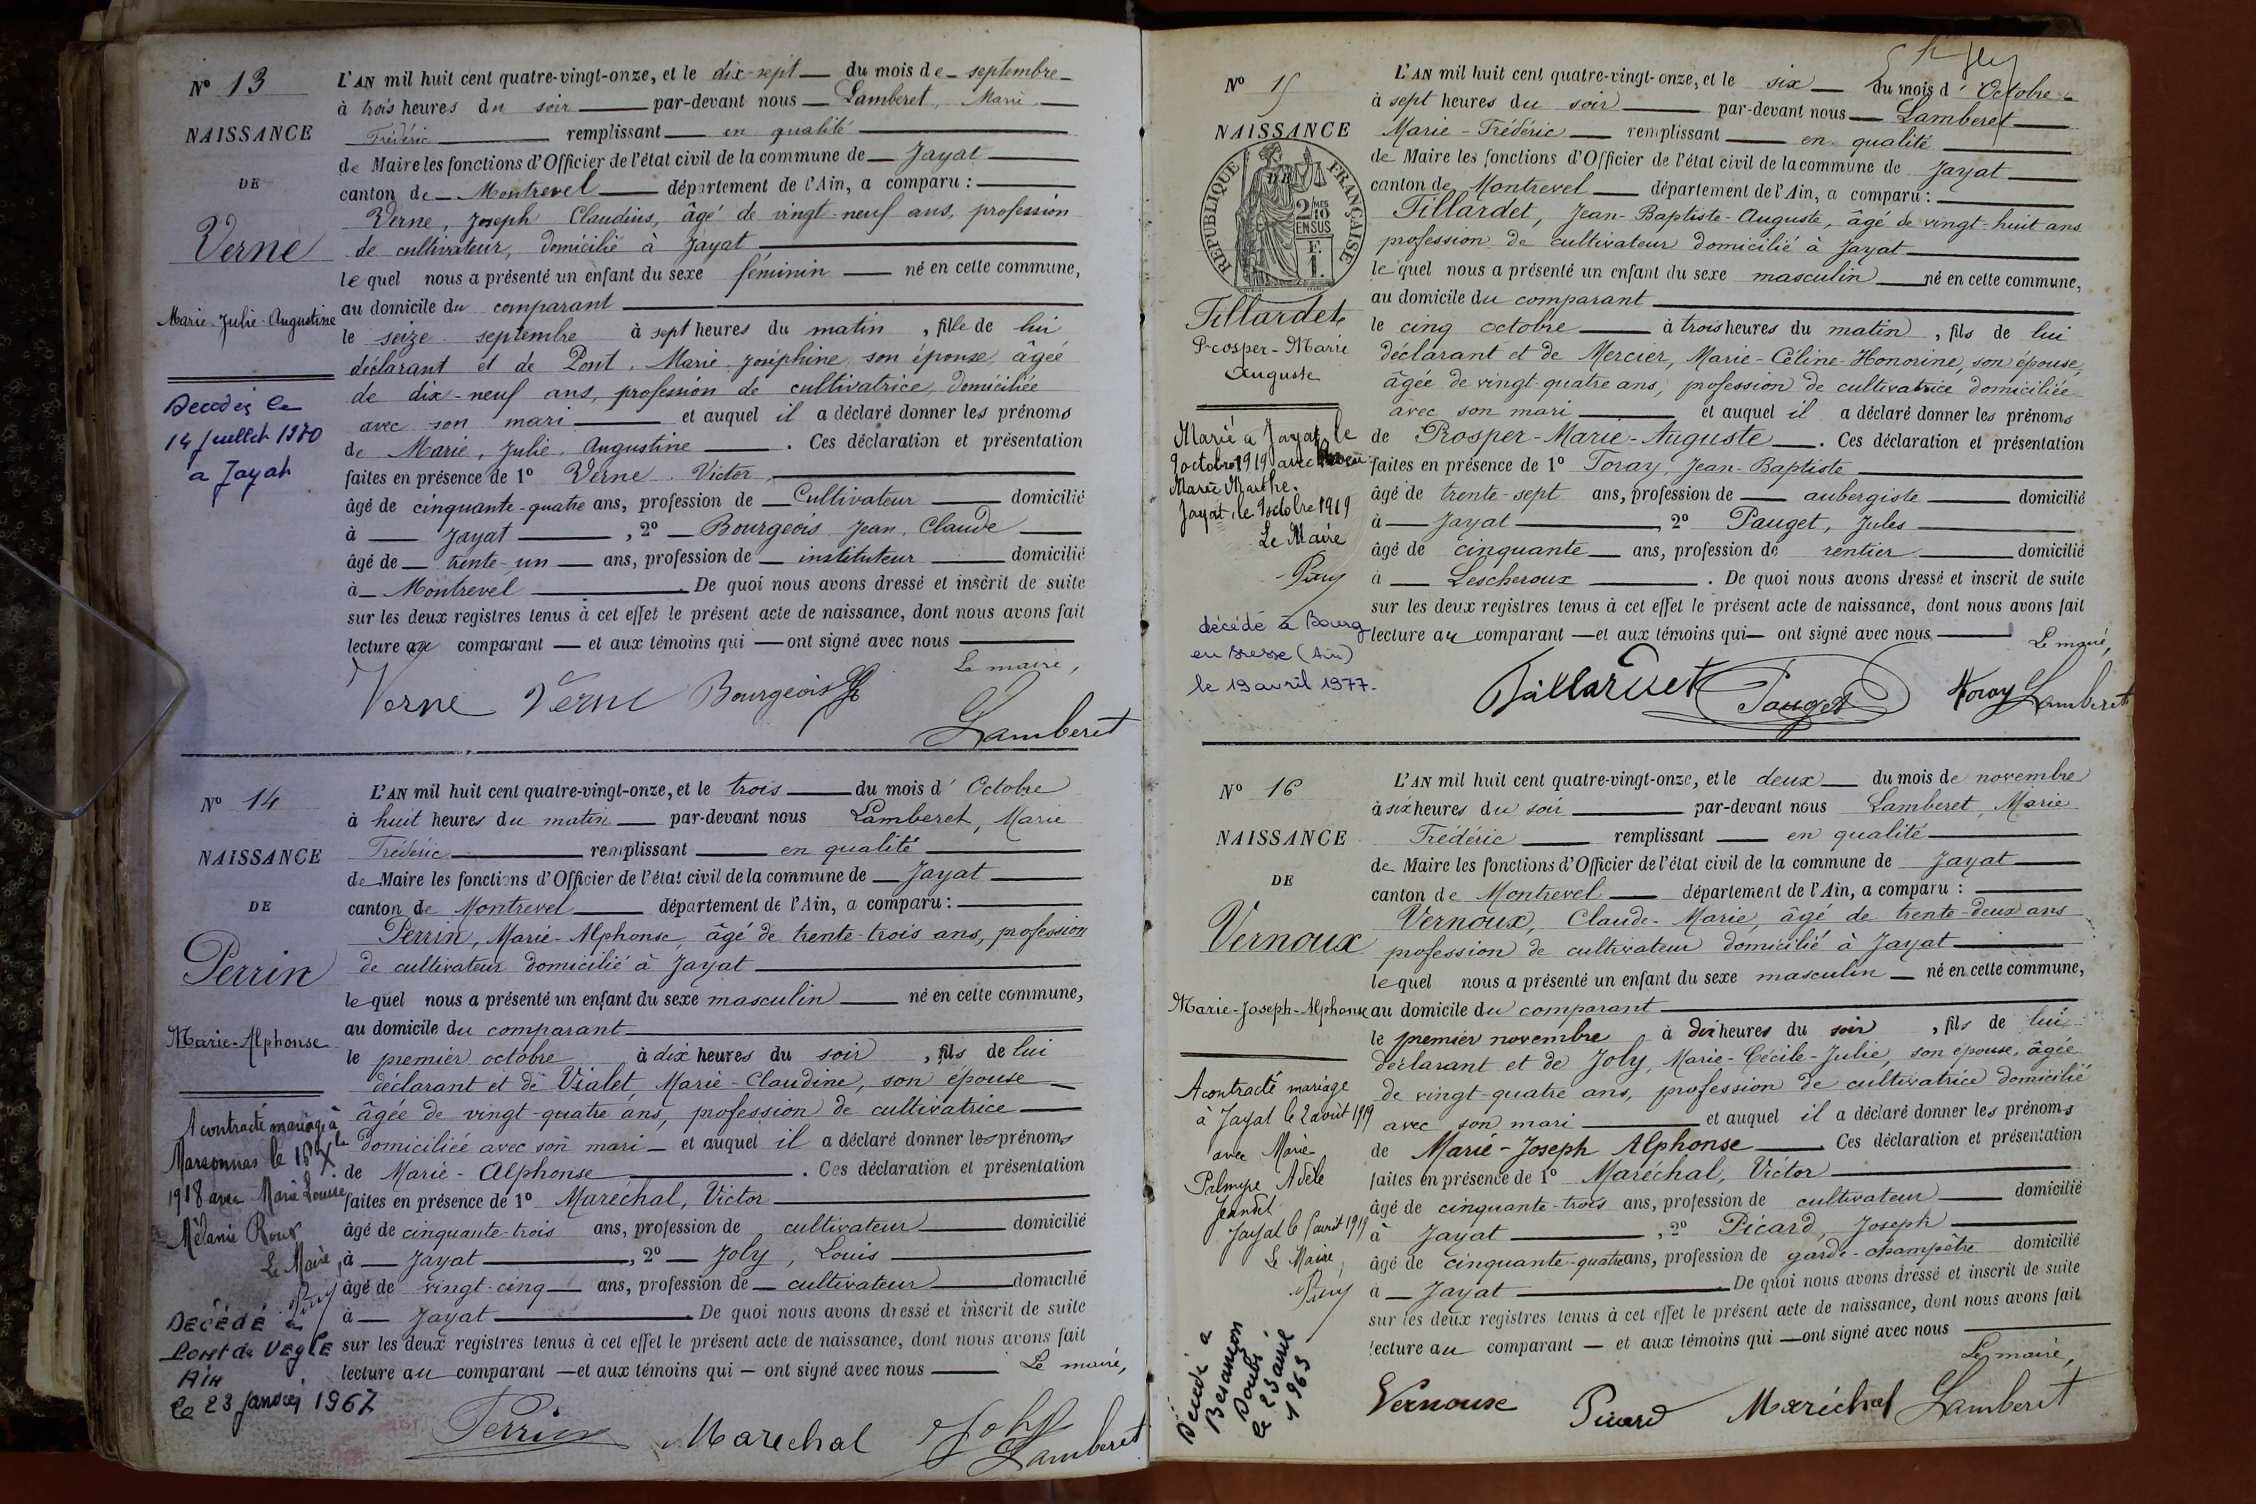 Nº 13
NAISSANCE
DE
Verne
Marie-Julie-Augustine
Décédée le
14 Juillet 1970
a Jayat
L'AN mil huit cent quatre-vingt-onze, et le dix-sept du mois de septembre
à trois heures du soir par-devant nous Lamberet, Marie
Frédéric remplissant en qualité
de Maire les fonctions d'Officier de l'état civil de la commune de Jayat
canton de Montrevel département de l'Ain, a comparu :
Verne, Joseph Claudius, âgé de vingt-neuf ans, profession
de cultivateur, domicilié à Jayat
lequel nous a présenté un enfant du sexe féminin né en cette commune,
au domicile du comparant
le seize septembre à sept heures du matin, fille de lui
déclarant et de Pont, Marie Joséphine, son épouse, âgée
de dix-neuf ans, profession de cultivatrice, domiciliée
avec son mari et auquel il a déclaré donner les prénoms
de Marie, Julie, Augustine. Ces déclaration et présentation
faites en présence de 1º Verne Victor
âgé de cinquante-quatre ans, profession de Cultivateur domicilié
à Jayat, 2º Bourgeois Jean, Claude
âgé de trente-un ans, profession de instituteur domicilié
à Montrevel. De quoi nous avons dressé et inscrit de suite
sur les deux registres tenus à cet effet le présent acte de naissance, dont nous avons fait
lecture au comparant et aux témoins qui ont signé avec nous
Le maire,
Verne Verne Bourgeois
Lamberet
Nº 14
NAISSANCE
DE
Perrin
Marie-Alphonse
A contracté mariage à
Marsonnas le 18 Xbre
1918 avec Marie Louise
Mélanie Roux
Le Maire,
DECÉDÉ à
Pont de Veyle
Ain
le 23 Janvier 1967
L'AN mil huit cent quatre-vingt-onze, et le trois du mois d'Octobre
à huit heures du matin par-devant nous Lamberet, Marie
Frédéric remplissant en qualité
de Maire les fonctions d'Officier de l'état civil de la commune de Jayat
canton de Montrevel département de l'Ain, a comparu :
Perrin, Marie-Alphonse, âgé de trente-trois ans, profession
de cultivateur domicilié à Jayat
lequel nous a présenté un enfant du sexe masculin né en cette commune,
au domicile du comparant
le premier octobre à dix heures du soir, fils de lui
déclarant et de Vialet, Marie-Claudine, son épouse
âgée de vingt-quatre ans, profession de cultivatrice
domiciliée avec son mari et auquel il a déclaré donner les prénoms
de Marie-Alphonse. Ces déclaration et présentation
faites en présence de 1º Maréchal, Victor
âgé de cinquante-trois ans, profession de cultivateur domicilié
à Jayat, 2º Joly, Louis
âgé de vingt-cinq ans, profession de cultivateur domicilié
à Jayat. De quoi nous avons dressé et inscrit de suite
sur les deux registres tenus à cet effet le présent acte de naissance, dont nous avons fait
lecture au comparant et aux témoins qui ont signé avec nous
Le maire,
Perrin Marechal Joly
Lamberet
Nº 15
NAISSANCE
REPUBLIQUE FRANÇAISE
2/10 MES
EN SUS
F.
1.
Tillardet
Prosper-Marie
Auguste
Marié à Jayat le
9 octobre 1919 avec
Marie Marthe.
Jayat, le 9 octobre 1919
Le Maire
décédé à Bourg
en Bresse (Ain)
le 19 avril 1977.
L'AN mil huit cent quatre-vingt-onze, et le six du mois d'Octobre
à sept heures du soir par-devant nous Lamberet
Marie-Frédéric remplissant en qualité
de Maire les fonctions d'Officier de l'état civil de la commune de Jayat
canton de Montrevel département de l'Ain, a comparu :
Tillardet, Jean-Baptiste-Auguste, âgé de vingt-huit ans
profession de cultivateur domicilié à Jayat
lequel nous a présenté un enfant du sexe masculin né en cette commune,
au domicile du comparant
le cinq octobre à trois heures du matin, fils de lui
déclarant et de Mercier, Marie-Céline-Honorine, son épouse,
âgée de vingt-quatre ans, profession de cultivatrice domiciliée
avec son mari et auquel il a déclaré donner les prénoms
de Prosper-Marie-Auguste. Ces déclaration et présentation
faites en présence de 1º Toray, Jean-Baptiste
âgé de trente-sept ans, profession de aubergiste domicilié
à Jayat, 2º Pauget, Jules
âgé de cinquante ans, profession de rentier domicilié
à Lescheroux. De quoi nous avons dressé et inscrit de suite
sur les deux registres tenus à cet effet le présent acte de naissance, dont nous avons fait
lecture au comparant et aux témoins qui ont signé avec nous
Le maire,
Tillardet Pauget Toray Lamberet
Nº 16
NAISSANCE
DE
Vernoux
Marie-Joseph-Alphonse
A contracté mariage
à Jayat le 2 août 1919
avec Marie-
Palmyre Adèle
Jeandet
Le Maire,
Décédé à
Besançon
Doubs
le 23 avril
1963
L'AN mil huit cent quatre-vingt-onze, et le deux du mois de novembre
à six heures du soir par-devant nous Lamberet, Marie
Frédéric remplissant en qualité
de Maire les fonctions d'Officier de l'état civil de la commune de Jayat
canton de Montrevel département de l'Ain, a comparu :
Vernoux, Claude-Marie, âgé de trente-deux ans
profession de cultivateur domicilié à Jayat
lequel nous a présenté un enfant du sexe masculin né en cette commune,
au domicile du comparant
le premier novembre à dix heures du soir, fils de lui
déclarant et de Joly, Marie-Cécile-Julie, son épouse, âgée
de vingt-quatre ans, profession de cultivatrice domicilié
avec son mari et auquel il a déclaré donner les prénoms
de Marie-Joseph Alphonse. Ces déclaration et présentation
faites en présence de 1º Maréchal, Victor
âgé de cinquante-trois ans, profession de cultivateur domicilié
à Jayat, 2º Picard, Joseph
âgé de cinquante-quatre ans, profession de garde-champêtre domicilié
à Jayat. De quoi nous avons dressé et inscrit de suite
sur les deux registres tenus à cet effet le présent acte de naissance, dont nous avons fait
lecture au comparant et aux témoins qui ont signé avec nous
Le maire,
Vernoux Picard Maréchal Lamberet